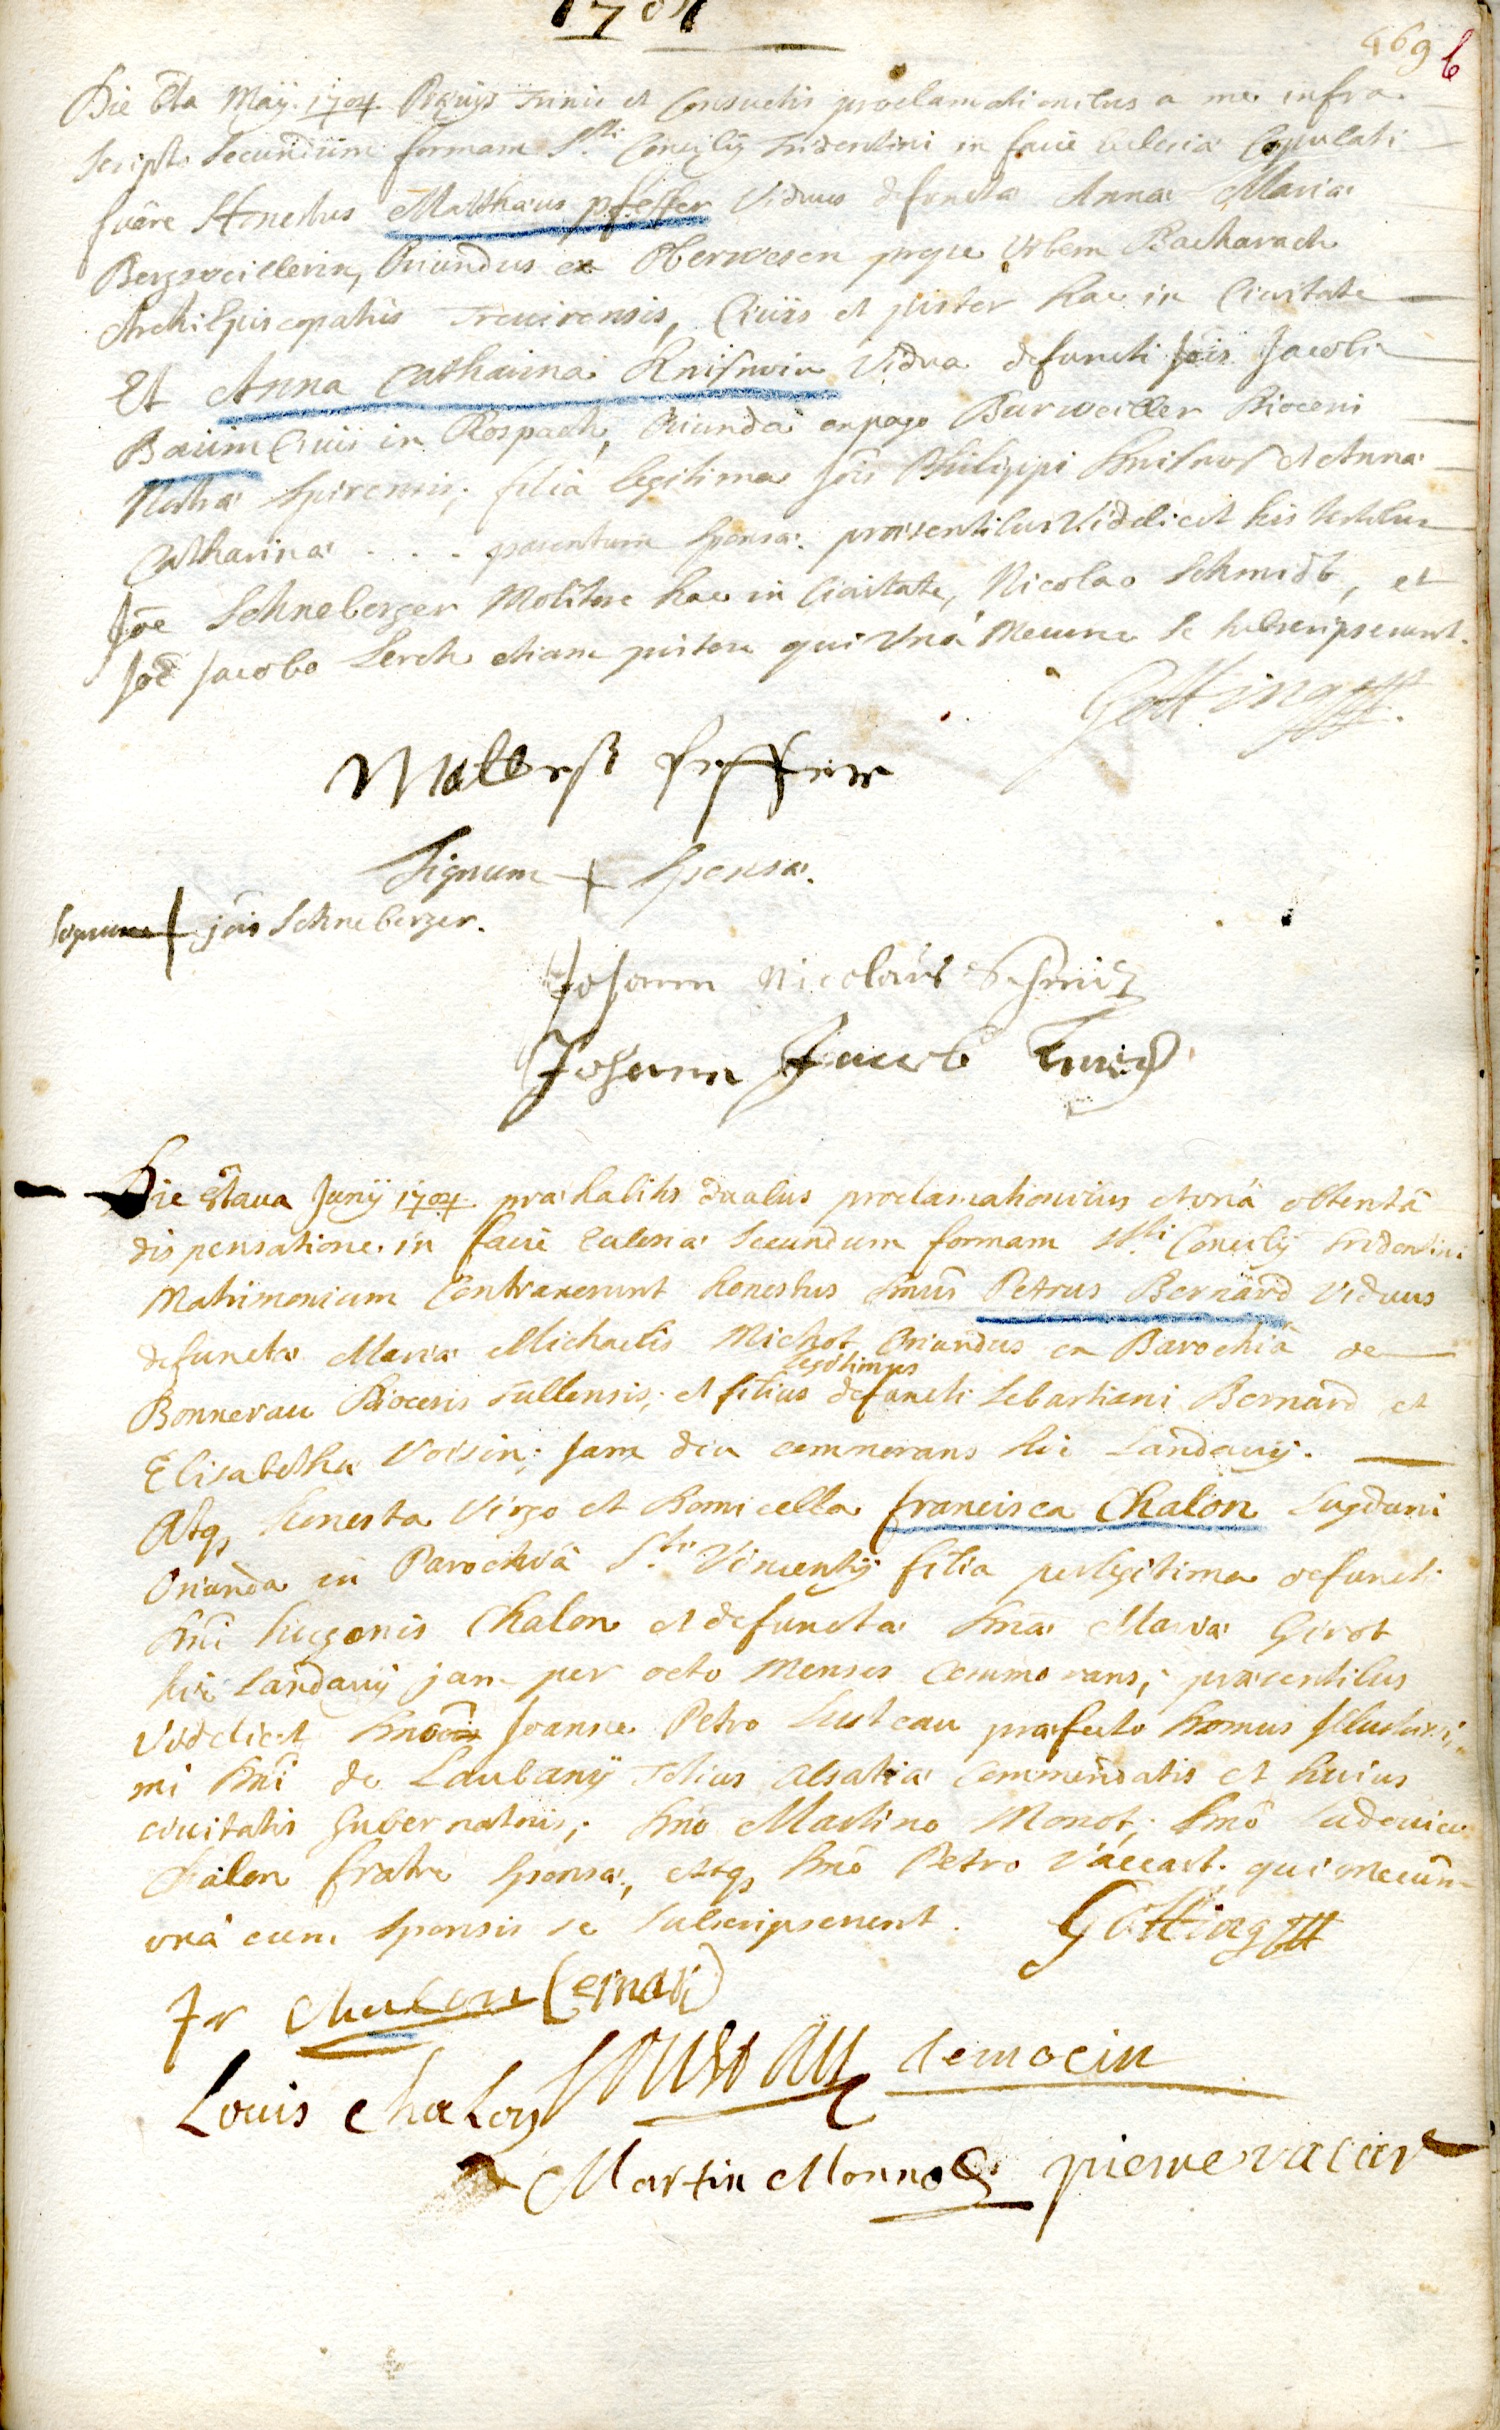 1704
469 6
Die 6ta Maÿ 1704 Præviis trinis et Consuetis proclamationibus a me infra
scripto Secundum formam Sti. Concilÿ Tridentini in facie Ecclesiæ Copulati
fuêre Honestus Matthæus pfeffer Viduus defunctæ Annæ Mariæ
Bergweillerin, Oriundus ex Oberwesen prope Urbem Bacharach
Archi Episcopatûs Trevirensis, Civis et pistor hac in Civitate
Et Anna Catharina Vidua defuncti Jois Jacobi
Baüm Civis in Rospach, Oriunda ex pago Burweiller Dioceseos
Spirensis, filia legitima Jois Philippi et Annæ
Catharinæ . . . . parentum sponsæ. præsentibus Videlicet his testibus
Jõe Schneberger Molitore hac in Civitate, Nicolao Schmidt, et
Joê Jacobo Lerch etiam pistore qui Unà Mecum se subscripserunt.
Götting
Matteß
Signum + Sponsæ.
Signum + jõis Schneberger.
Johann Nicolaus Schmidt
Johann Jacob Lerch
Die 8tava Junÿ 1704 præhabitis duabus proclamationibus et unâ obtentâ
dispensatione in facie Ecclesiæ Secundum formam Sti Concilÿ Tridentini
Matrimonium Contraxerunt honestus Dnûs Petrus Bernard Viduus
defunctæ Mariæ Michaelis Michot Oriundus ex Parochiâ de
Bonnevau Diocesis Tullensis, et filius legitimus defuncti Sebastiani Bernard et
Elisabetha Voisin; jam diu commorans hic Landavÿ.
Atq, honesta Virgo et Domicella francisca Chalon Lugduni
Oriunda in Parochiâ Sti Vincentÿ filia perlegitima defuncti
Dni hugonis Chalon et defuncta Dna Maria Girot
hic Landavÿ jam per octo Menses Commorans; præsentibus
Videlicet Dno Joanne Petro præfecto Domus Illustrissi,,
mi Dni de Laubanÿ Totius Alsatiæ Commendatis et huius
civitatis Gubernatoris; Dno Martino Monot; Dno Ludovico
Chalon fratre sponsæ, Atq, Dno Petro Vaccart. qui mecum
unà cum Sponsis se subscripserunt. Götting
fr Chalon Bernard
Louis Chalon
Martin Monnot pierre vacart